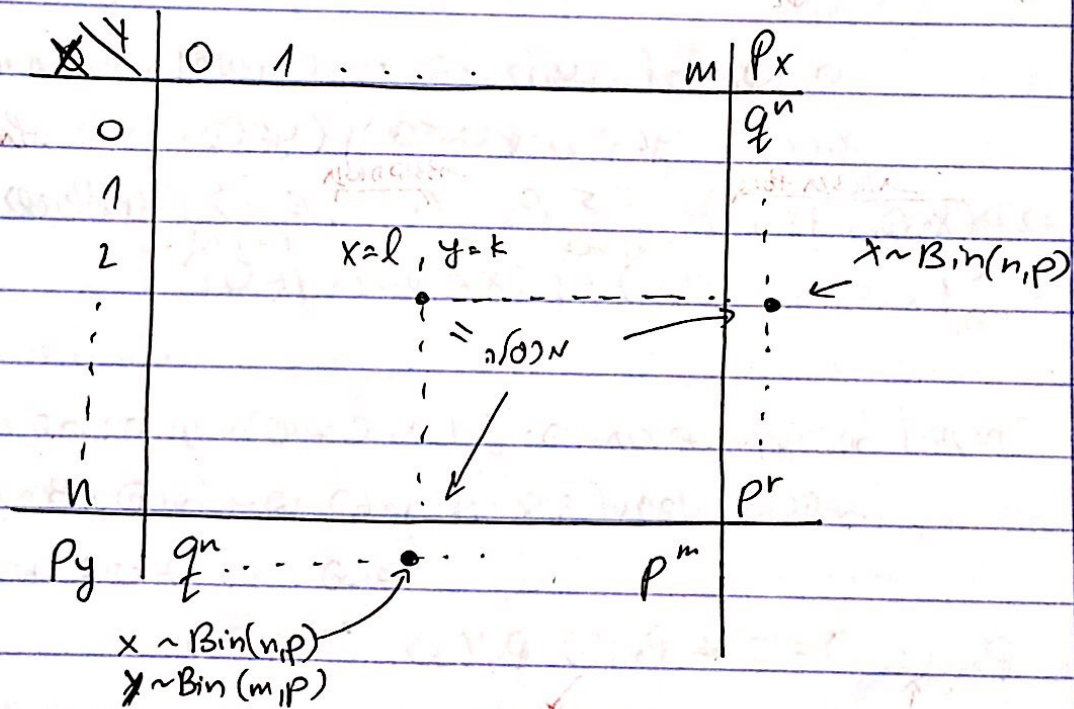 X Y 0 1 . . . . . m Px
0 qⁿ
1
2 x=l , y=k X~Bin(n,p)
= מכפלה
n pʳ
Py qⁿ . . . . . . . pᵐ
x ~ Bin(n,p)
y ~ Bin(m,p)